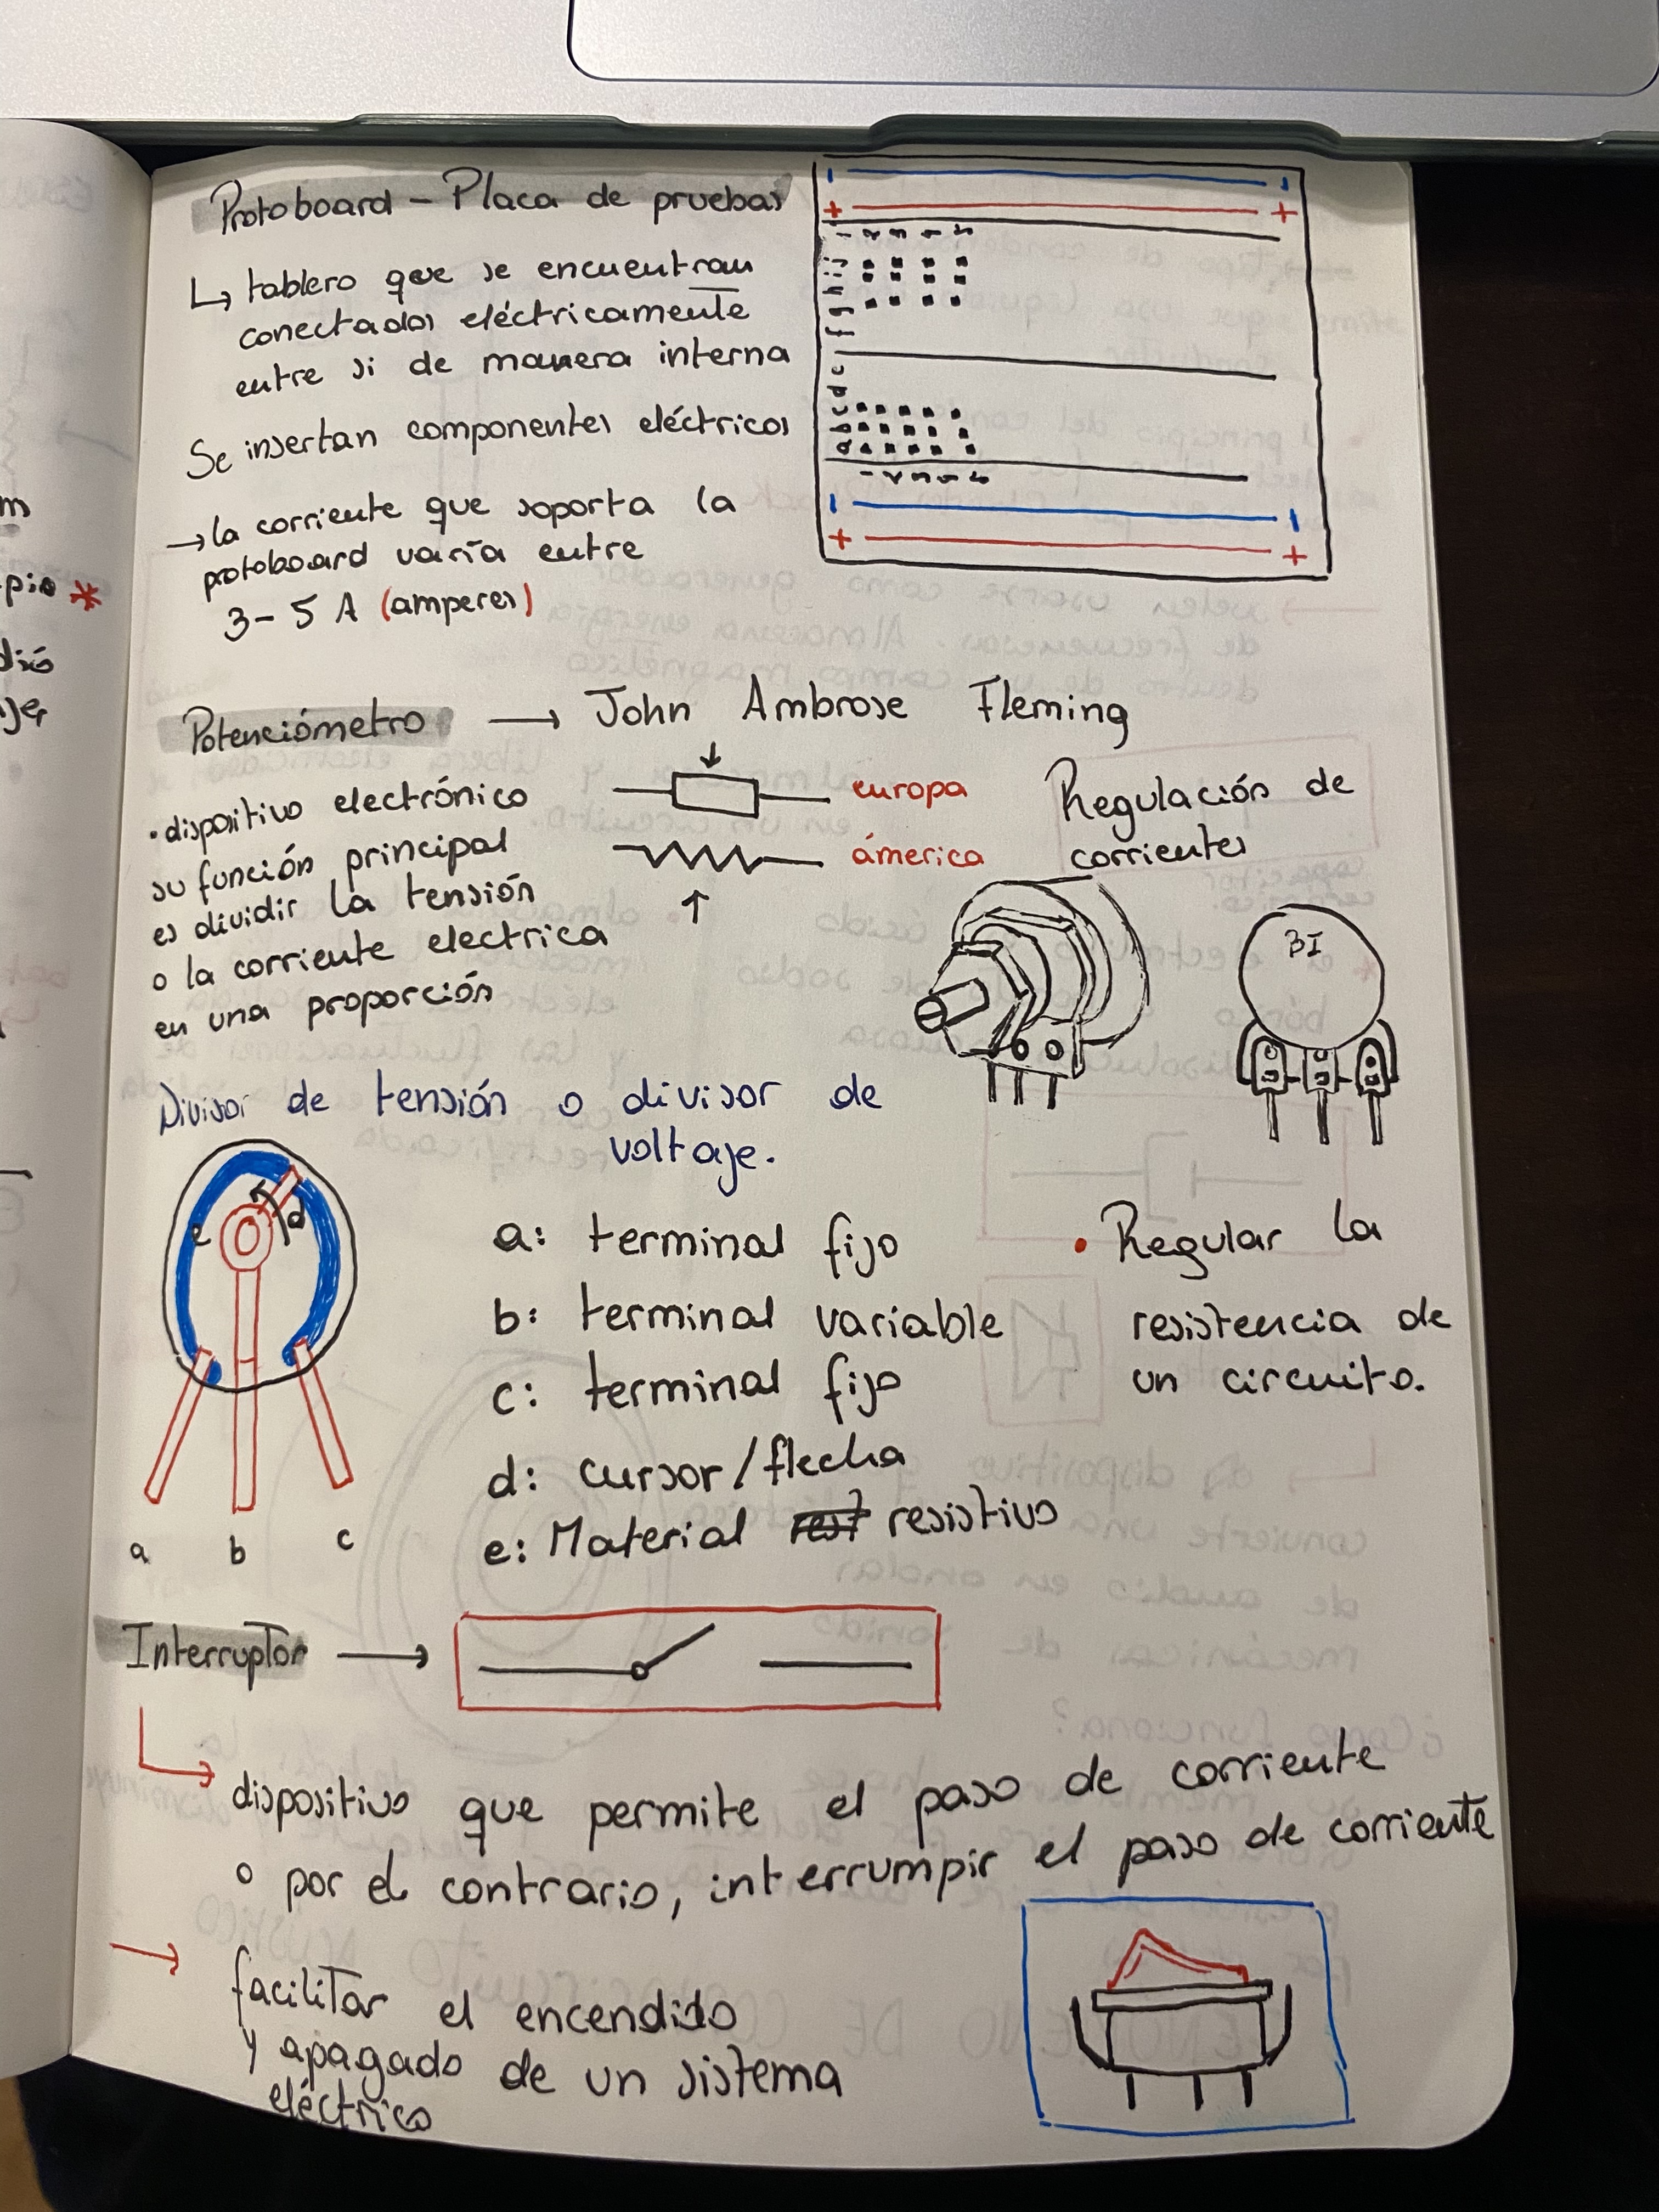 Protoboard - Placa de pruebas
↳ tablero que se encuentran
conectados eléctricamente
entre si de manera interna
Se insertan componentes eléctricos
→ la corriente que soporta la
protoboard varía entre
3 - 5 A (amperes)
Potenciómetro → John Ambrose Fleming
• dispositivo electrónico
su función principal
es dividir la tensión
o la corriente electrica
en una proporción
europa
ámerica
Regulación de
corrientes
Divisor de tensión o divisor de
voltaje.
e d
a b c
a: terminal fijo
b: terminal variable
c: terminal fijo
d: cursor/flecha
e: Material resistivo
• Regular la
resistencia de
un circuito.
Interruptor →
dispositivo que permite el paso de corriente
o por el contrario, interrumpir el paso de corriente
→ facilitar el encendido
y apagado de un sistema
eléctrico